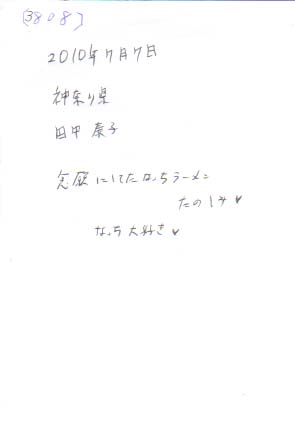 [3808]
2010年7月7日
神奈川県
田中 泰子
念願にしてたなっちラーメン
たのしみ♥
なっち大好き♥